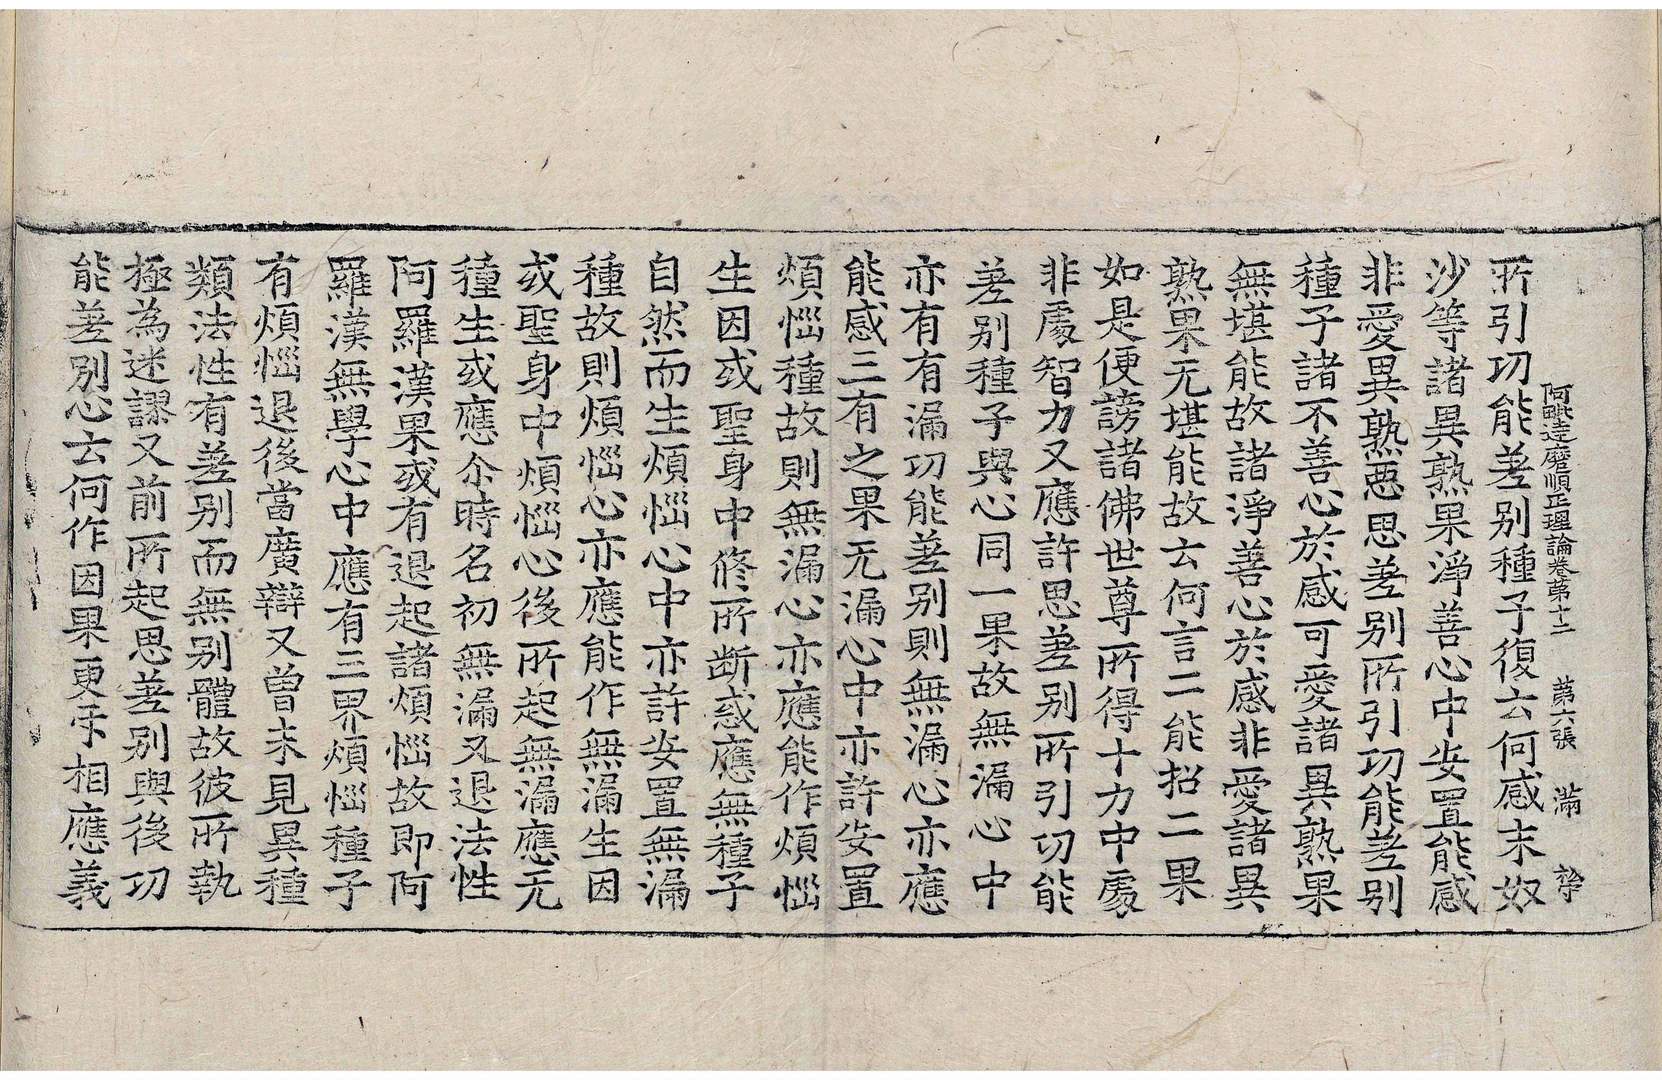 阿毗達磨順正理論卷第十二 第六張 滿
所引功能差別種子復云何感末奴
沙等諸異熟果淨善心中安置能感
非愛異熟惡思差別所引功能差別
種子諸不善心於感可愛諸異熟果
無堪能故諸淨善心於感非愛諸異
熟果无堪能故云何言二能招二果
如是便謗諸佛世尊所得十力中處
非處智力又應許思差別所引功能
差別種子與心同一果故無漏心中
亦有有漏功能差別則無漏心亦應
能感三有之果无漏心中亦許安置
煩惱種故則無漏心亦應能作煩惱
生因或聖身中修所斷惑應無種子
自然而生煩惱心中亦許安置無漏
種故則煩惱心亦應能作無漏生因
或聖身中煩惱心後所起無漏應无
種生或應尒時名初無漏又退法性
阿羅漢果或有退起諸煩惱故即阿
羅漢無學心中應有三界煩惱種子
有煩惱退後當廣辯又曾未見異種
類法性有差別而無別體故彼所執
極為迷謬又前所起思差別與後功
能差別心云何作因果更互相應義